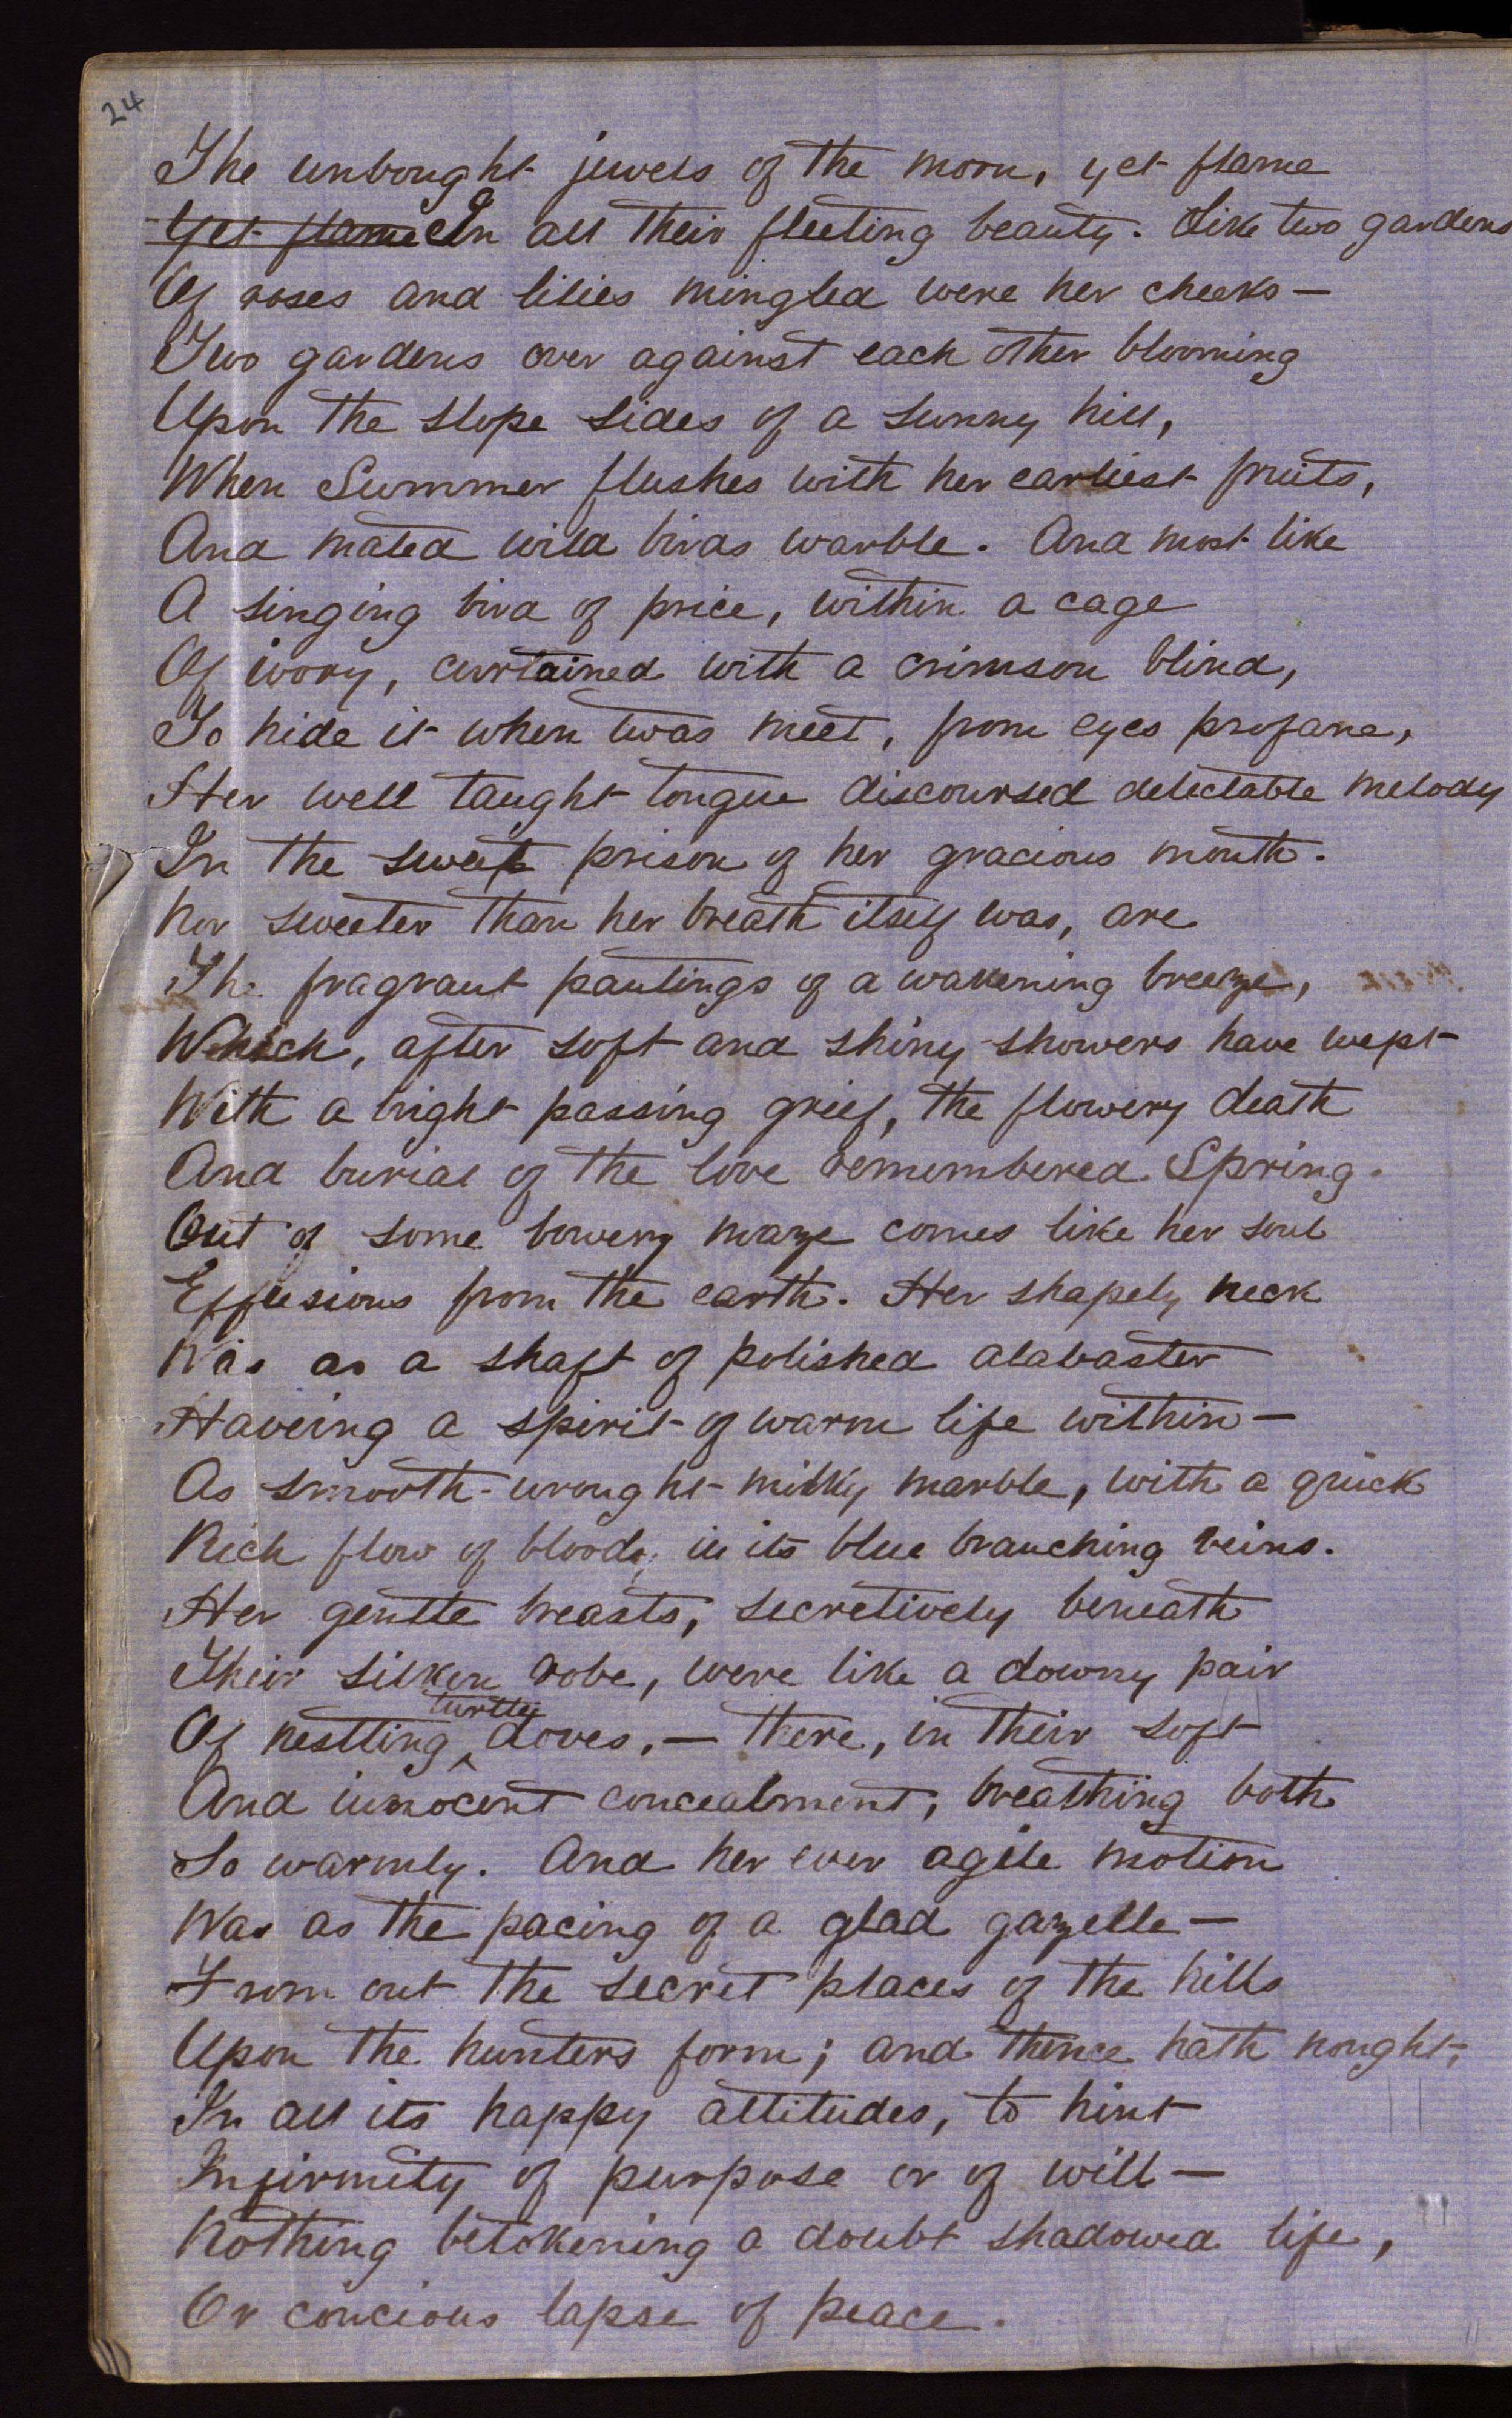 24
The unbought jewels of the moon, yet flame
Yet flame In all their fleeting beauty. Like two gardens
Of roses and lilies mingled were her cheeks —
Two gardens over against each other blooming
Upon the slope sides of a sunny hill,
When Summer flushes with her earliest fruits,
And mated wild birds warble. And most like
A singing bird of price, within a cage
Of ivory, curtained with a crimson blind,
To hide it when twas meet, from eyes profane,
Her well taught tongue discoursed delectable melody
In the sweet prison of her gracious mouth.
Nor sweeter than her breath itself was, are
The fragrant pantings of a wakening breeze,
Which, after soft and shiny showers have wept
With a bright passing grief, the flowery death
And burial of the love remembered Spring.
Out of some bowery maze comes like her soul
Effusions from the earth. Her shapely neck
Was as a shaft of polished alabaster
Haveing a spirit of warm life within —
As smooth-wrought milky marble, with a quick
Rich flow of blood, in its blue branching veins.
Her gentle breasts, secretively beneath
Their silken robe, were like a downy pair
Of nestling turtle doves, — there, in their soft
And innocent concealment, breathing both
So warmly. And her ever agile motion
Was as the pacing of a glad gazelle —
From out the secret places of the hills
Upon the hunters form; and thence hath nought,
In all its happy attitudes, to hint
Infirmity of purpose or of will —
Nothing betokening a doubt shadowed life,
Or concious lapse of peace.